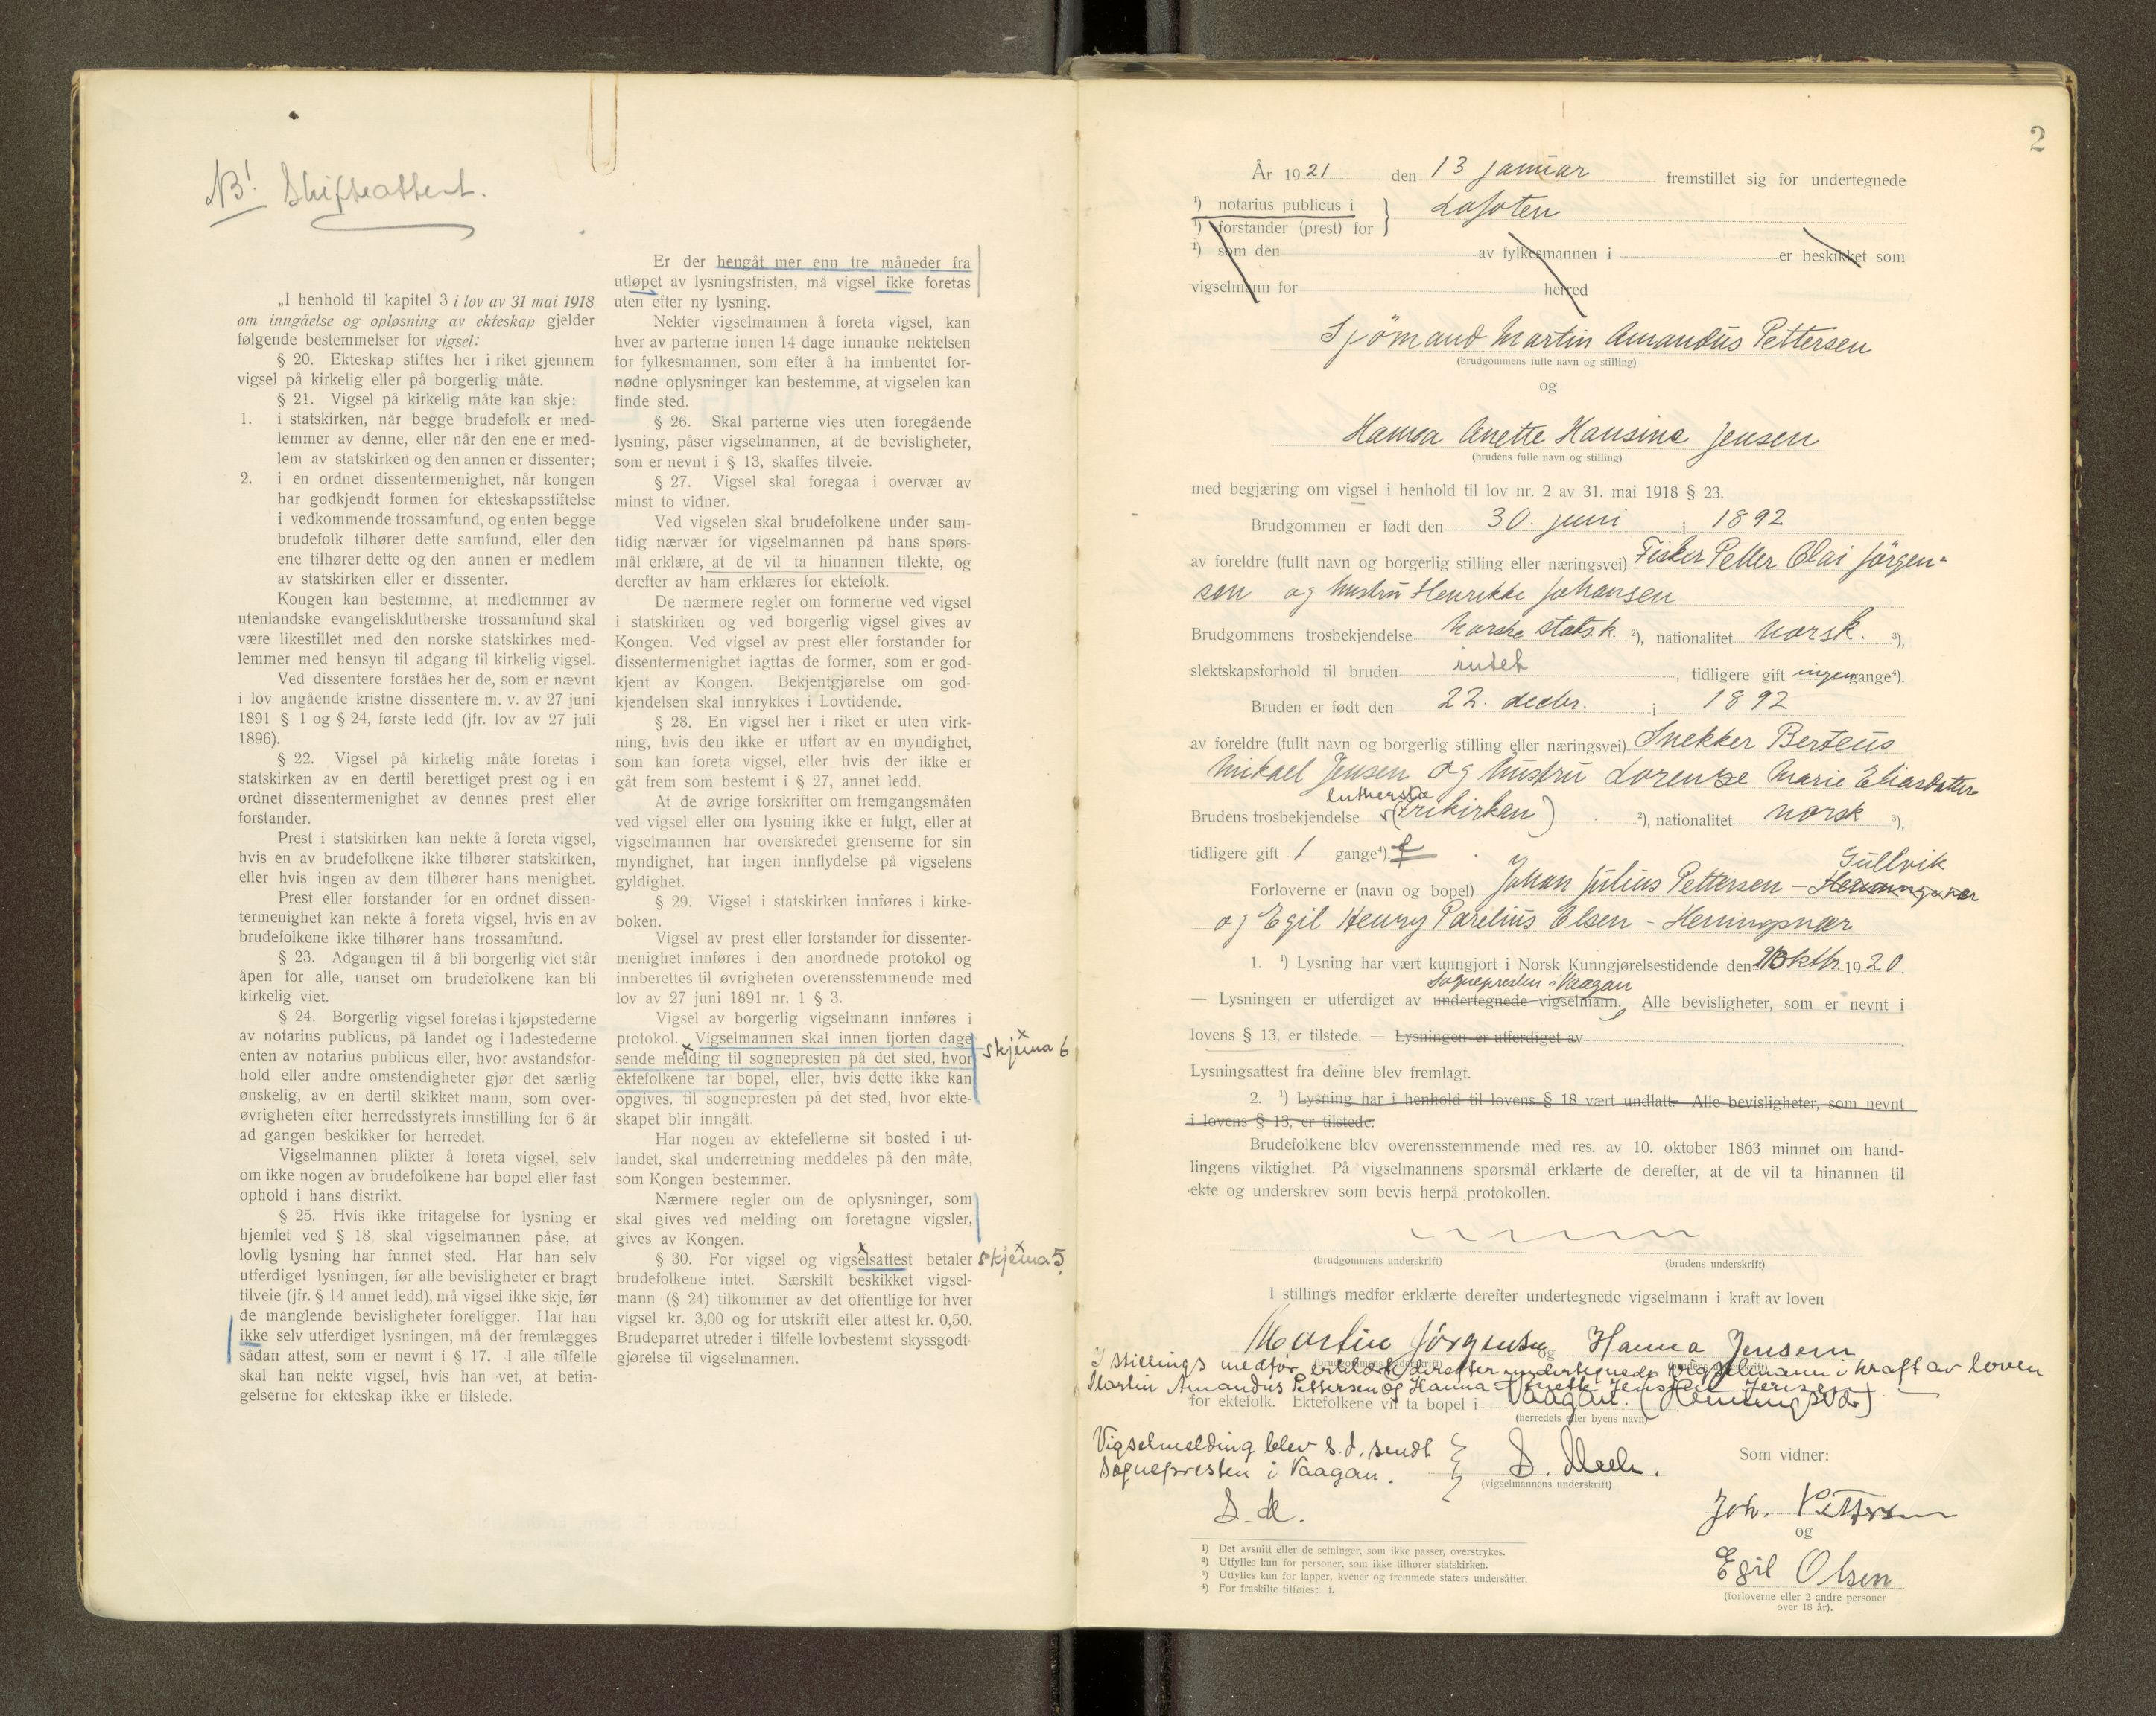 NB! Skifteattest.
„I henhold til kapitel 3 i lov av 31 mai 1918
om inngåelse og opløsning av ekteskap gjelder
følgende bestemmelser for vigsel:
§ 20. Ekteskap stiftes her i riket gjennem
vigsel på kirkelig eller på borgerlig måte.
§ 21. Vigsel på kirkelig måte kan skje:
1. i statskirken, når begge brudefolk er med-
lemmer av denne, eller når den ene er med-
lem av statskirken og den annen er dissenter;
2. i en ordnet dissentermenighet, når kongen
har godkjendt formen for ekteskapsstiftelse
i vedkommende trossamfund, og enten begge
brudefolk tilhører dette samfund, eller den
ene tilhører dette og den annen er medlem
av statskirken eller er dissenter.
Kongen kan bestemme, at medlemmer av
utenlandske evangelisklutherske trossamfund skal
være likestillet med den norske statskirkes med-
lemmer med hensyn til adgang til kirkelig vigsel.
Ved dissentere forståes her de, som er nævnt
i lov angående kristne dissentere m. v. av 27 juni
1891 § 1 og § 24, første ledd (jfr. lov av 27 juli
1896).
§ 22. Vigsel på kirkelig måte foretas i
statskirken av en dertil berettiget prest og i en
ordnet dissentermenighet av dennes prest eller
forstander.
Prest i statskirken kan nekte å foreta vigsel,
hvis en av brudefolkene ikke tilhører statskirken,
eller hvis ingen av dem tilhører hans menighet.
Prest eller forstander for en ordnet dissen-
termenighet kan nekte å foreta vigsel, hvis en av
brudefolkene ikke tilhører hans trossamfund.
§ 23. Adgangen til å bli borgerlig viet står
åpen for alle, uanset om brudefolkene kan bli
kirkelig viet.
§ 24. Borgerlig vigsel foretas i kjøpstederne
av notarius publicus, på landet og i ladestederne
enten av notarius publicus eller, hvor avstandsfor-
hold eller andre omstendigheter gjør det særlig
ønskelig, av en dertil skikket mann, som over-
øvrigheten efter herredsstyrets innstilling for 6 år
ad gangen beskikker for herredet.
Vigselmannen plikter å foreta vigsel, selv
om ikke nogen av brudefolkene har bopel eller fast
ophold i hans distrikt.
§ 25. Hvis ikke fritagelse for lysning er
hjemlet ved § 18 skal vigselmannen påse, at
lovlig lysning har funnet sted. Har han selv
utferdiget lysningen, før alle bevisligheter er bragt
tilveie (jfr. § 14 annet ledd), må vigsel ikke skje, før
de manglende bevisligheter foreligger. Har han
ikke selv utferdiget lysningen, må der fremlægges
sådan attest, som er nevnt i § 17. I alle tilfelle
skal han nekte vigsel, hvis han vet, at betin-
gelserne for ekteskap ikke er tilstede.
Er der hengåt mer enn tre måneder fra
utløpet av lysningsfristen, må vigsel ikke foretas
uten efter ny lysning.
Nekter vigselmannen å foreta vigsel, kan
hver av parterne innen 14 dage innanke nektelsen
for fylkesmannen, som efter å ha innhentet for-
nødne oplysninger kan bestemme, at vigselen kan
finde sted.
§ 26. Skal parterne vies uten foregående
lysning, påser vigselmannen, at de bevisligheter,
som er nevnt i § 13, skaffes tilveie.
§ 27. Vigsel skal foregaa i overvær av
minst to vidner.
Ved vigselen skal brudefolkene under sam-
tidig nærvær for vigselmannen på hans spørs-
mål erklære, at de vil ta hinannen tilekte, og
derefter av ham erklæres for ektefolk.
De nærmere regler om formerne ved vigsel
i statskirken og ved borgerlig vigsel gives av
Kongen. Ved vigsel av prest eller forstander for
dissentermenighet iagttas de former, som er god-
kjent av Kongen. Bekjentgjørelse om god-
kjendelsen skal innrykkes i Lovtidende.
§ 28. En vigsel her i riket er uten virk-
ning, hvis den ikke er utført av en myndighet,
som kan foreta vigsel, eller hvis der ikke er
gåt frem som bestemt i § 27, annet ledd.
At de øvrige forskrifter om fremgangsmåten
ved vigsel eller om lysning ikke er fulgt, eller at
vigselmannen har overskredet grenserne for sin
myndighet, har ingen innflydelse på vigselens
gyldighet.
§ 29. Vigsel i statskirken innføres i kirke-
boken.
Vigsel av prest eller forstander for dissenter-
menighet innføres i den anordnede protokol og
innberettes til øvrigheten overensstemmende med
lov av 27 juni 1891 nr. 1 § 3.
Vigsel av borgerlig vigselmann innføres i
protokol. Vigselmannen skal innen fjorten dage
sende melding til sognepresten på det sted, hvor skjema 6
ektefolkene tar bopel, eller, hvis dette ikke kan
opgives, til sognepresten på det sted, hvor ekte-
skapet blir inngått.
Har nogen av ektefellerne sit bosted i ut-
landet, skal underretning meddeles på den måte,
som Kongen bestemmer.
Nærmere regler om de oplysninger, som
skal gives ved melding om foretagne vigsler,
gives av Kongen.
§ 30. For vigsel og vigselsattest betaler skjema 5
brudefolkene intet. Særskilt beskikket vigsel-
mann (§ 24) tilkommer av det offentlige for hver
vigsel kr. 3,00 og for utskrift eller attest kr. 0,50.
Brudeparret utreder i tilfelle lovbestemt skyssgodt-
gjørelse til vigselmannen.
2
År 1921 den 13 januar fremstillet sig for undertegnede
¹) notarius publicus i } Lofoten
¹) forstander (prest) for
¹) som den av fylkesmannen i er beskikket som
vigselmann for herred
Sjömand Martin Amandus Pettersen
(brudgommens fulle navn og stilling)
og
Hanna Anette Hansine Jensen
(brudens fulle navn og stilling)
med begjæring om vigsel i henhold til lov nr. 2 av 31. mai 1918 § 23.
Brudgommen er født den 30. juni i 1892
av foreldre (fullt navn og borgerlig stilling eller næringsvei) Fisker Petter Olai Jörgen-
sen og hustru Henrikke Johansen
Brudgommens trosbekjendelse Norske statsk. ²), nationalitet norsk. ³),
slektskapsforhold til bruden intet , tidligere gift ingen gange⁴).
Bruden er født den 22. decbr. i 1892
av foreldre (fullt navn og borgerlig stilling eller næringsvei) Snekker Berteus
Mikael Jensen og hustru Lorentze Marie Eliasdatter
lutherske
Brudens trosbekjendelse (frikirken) ²), nationalitet norsk ³),
tidligere gift 1 gange⁴). f
Gullvik
Forloverne er (navn og bopel) Johan Julius Pettersen - Henningsvær
og Egil Henry Parelius Olsen - Henningsvær
1. ¹) Lysning har vært kunngjort i Norsk Kunngjørelsestidende den oktbr. 1920.
Sognepresten i Vaagan
— Lysningen er utferdiget av undertegnede vigselmann. Alle bevisligheter, som er nevnt i
lovens § 13, er tilstede. — Lysningen er utferdiget av
Lysningsattest fra denne blev fremlagt.
2. ¹) Lysning har i henhold til lovens § 18 vært undlatt. Alle bevisligheter, som nevnt
i lovens § 13, er tilstede.
Brudefolkene blev overensstemmende med res. av 10. oktober 1863 minnet om hand-
lingens viktighet. På vigselmannens spørsmål erklærte de derefter, at de vil ta hinannen til
ekte og underskrev som bevis herpå protokollen.
(brudgommens underskrift) (brudens underskrift)
I stillings medfør erklærte derefter undertegnede vigselmann i kraft av loven
Martin Jörgensen og Hanna Jensen
(brudgommens underskrift) (brudens underskrift)
I stillings medför erklærte derefter undertegnede vigselmann i kraft av loven
Martin Amandus Pettersen og Hanna Anette Hansine Jensen
for ektefolk. Ektefolkene vil ta bopel i Vaagan. (Henningsvær)
(herredets eller byens navn)
Vigselmelding blev s.d. sendt
Sognepresten i Vaagan.
(vigselmannens underskrift)
Som vidner:
Joh. Pettersen
og
Egil Olsen
(forloverne eller 2 andre personer
over 18 år).
¹) Det avsnitt eller de setninger, som ikke passer, overstrykes.
²) Utfylles kun for personer, som ikke tilhører statskirken.
³) Utfylles kun for lapper, kvener og fremmede staters undersåtter.
⁴) For fraskilte tilføies: f.